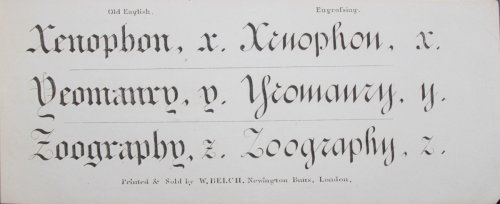 Old English. Engrossing.
Xenophon, x. Xenophon, x.
Yeomanry, y. Yeomanry, y.
Zoography, z. Zoography, z.
Printed & Sold by W. BELCH, Newington Butts, London.